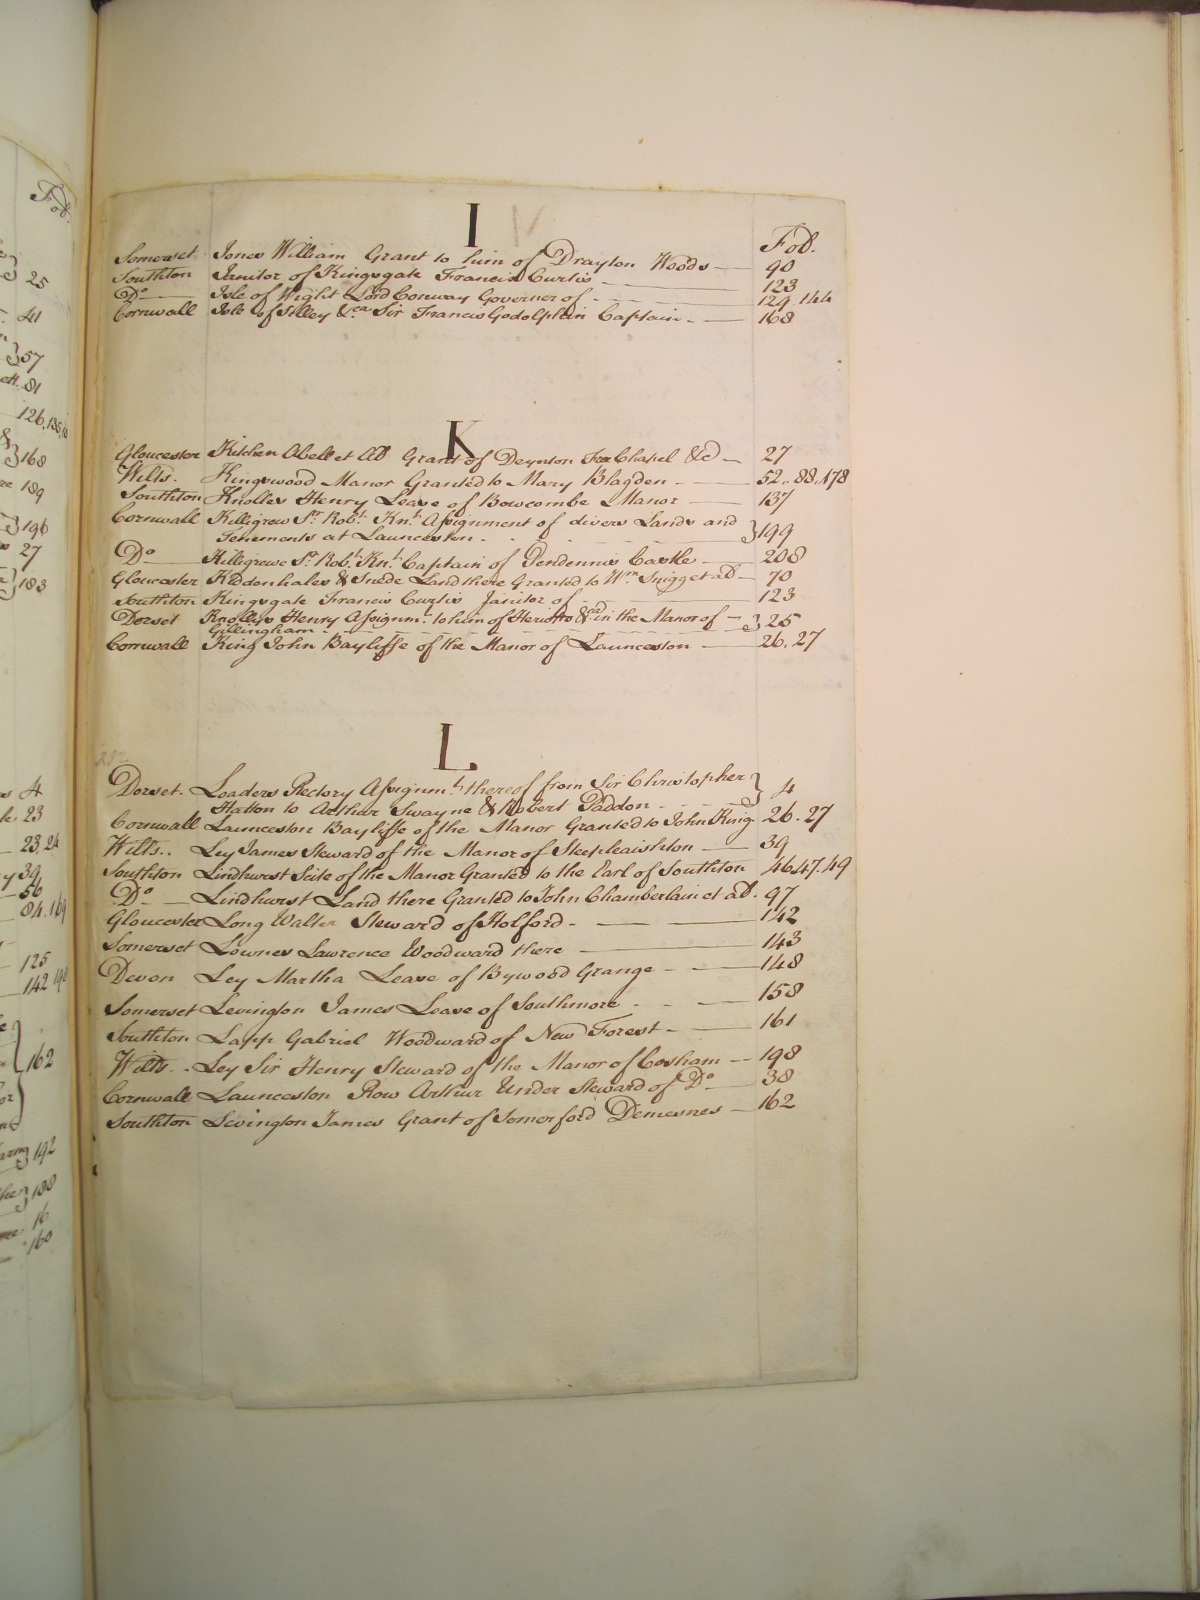 I
Fol.
Somerset Jones William Grant to him of Drayton Woods — 90
Southton Janitor of Kingsgate Francis Curtis — 123
Do. — Isle of Wight Lord Conway Governer of - — 129.144
Cornwall Isle of Silley &ca Sir Francis Godolphin Captain - — 168
K
Gloucester Kitchen Abell et All Grant of Deynton Free Chapel &c — 27
Wilts. Kingswood Manor Granted to Mary Blagden - — 52..88.178
Southton Knolles Henry Lease of Bowcombe Manor — 137
Cornwall Killigrew Sr. Robt. Knt. Assignment of divers Lands and
Tenements at Launceston - } 199
Do. Killegrewe Sr. Robt. Knt. Captain of Pendennis Castle — 208
Gloucester Kiddenhales & Snede Land there Granted to Wm. Snigget al — 70
Southton Kingsgate Francis Curtis Janitor of - — 123
Dorset Knollys Henry Assignmt. to him of Heriotts &ca in the Manor of —
Gillingham - } 25
Cornwall King John Bayliffe of the Manor of Launceston — 26.27
L
Dorset. Loaders Rectory Assignmt. thereof from Sir Christopher
Hatton to Arthur Swayne & Robert Paddon - } 4
Cornwall Launceston Bayliffe of the Manor Granted to John King. 26.27
Wilts.. Ley James Steward of the Manor of Steepleaishton — 39
Southton Lindhurst Scite of the Manor Granted to the Earl of Southton 46.47.49
Do. — Lindhurst Land there Granted to John Chamberlain et al. 97
Gloucester Long Walter Steward of Holford - — 142
Somerset Lownes Lawrence Woodward there — 143
Devon Ley Martha Lease of Bywood Grange - — 148
Somerset Levington James Lease of Southmore - — 158
Southton Lapp Gabriel Woodward of New Forest - — 161
Wilts. - Ley Sir Henry Steward of the Manor of Cosham — 198
Cornwall Launceston Row Arthur Under Steward of Do. — 38
Southton Levington James Grant of Somerford Demesnes — 162
Fol.
25
41
57
81
126.135
168
189
196
27
183
4
23
23,24
39
56
84.169
125
142
162
192
188
16
160